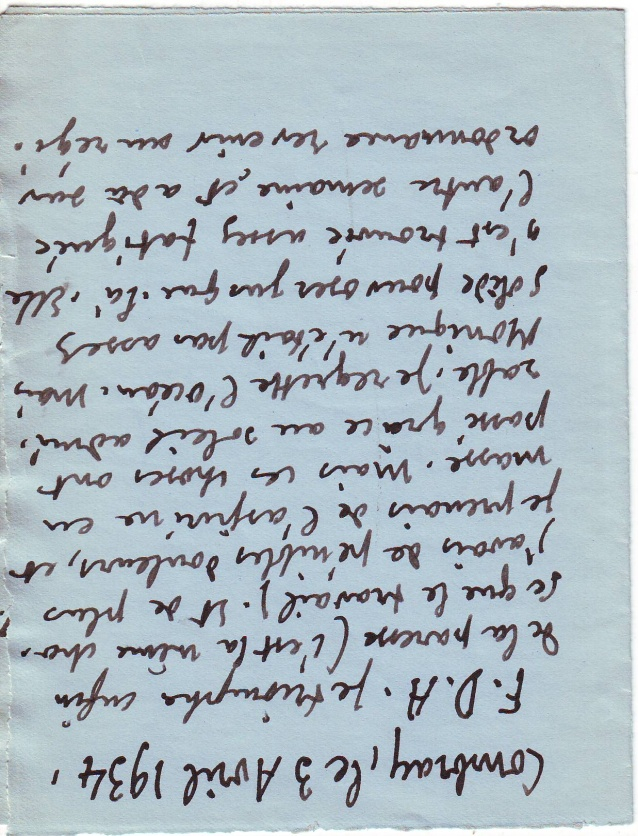 Combray, le 3 Avril 1934.
F.D.A. Je triomphe enfin
de la paresse (c'est la même cho-
se que le travail). Et de plus
j'avais de pénibles douleurs, et
je prenais de l'aspirine en
masse. Mais les choses ont
passé, grace au soleil admi-
rable. Je regrette l'Océan. Mais
Monique n'était pas assez
solide pour oser jusque-là. Elle
s'est trouvée assez fatiguée
l'autre semaine, et a dû sur
ordonnance revenir au régi-